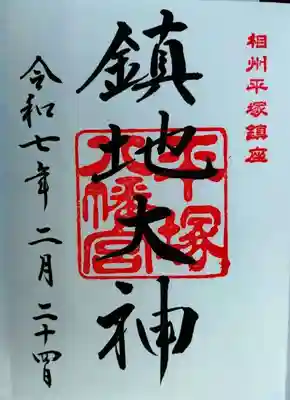 相州平塚鎮座
鎮地大神
平塚
八幡宮
令和七年二月二十四日